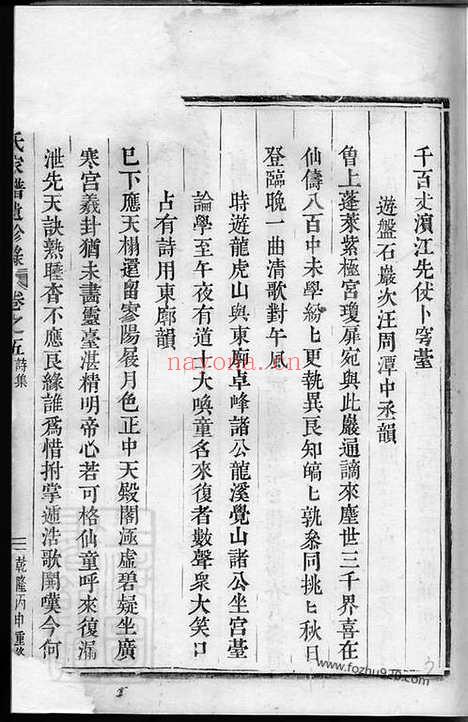 千百丈濱江先伏卜穹臺
遊盤石巖次汪周潭中丞韻
曾上蓬萊紫極宮瓊扉宛與此巖通謫來塵世三千界喜在
仙儔八百中未學紛匕更執異艮知皜匕孰叅同挑匕秋日
登臨晚一曲清歌對午風
時遊龍虎山與東廓卓峰諸公龍溪覺山諸公坐宮臺
論學至午夜有道士大喚童名來復者數聲衆大笑口
占有詩用東廓韻
巳下應天榻還留寥陽展月色正中天殿閣極虛碧凝坐廣
寒宮羲封猶未畫靈臺湛精明帝心若可格仙童呼來復漏
泄先天訣熟睡杳不應艮緣誰爲惜拊掌逓浩歌開嘆今何
氏家譜遺珍錄 卷之五 詩集
三 乾隆丙申重修
nayona.cn
www.fozhu920.com